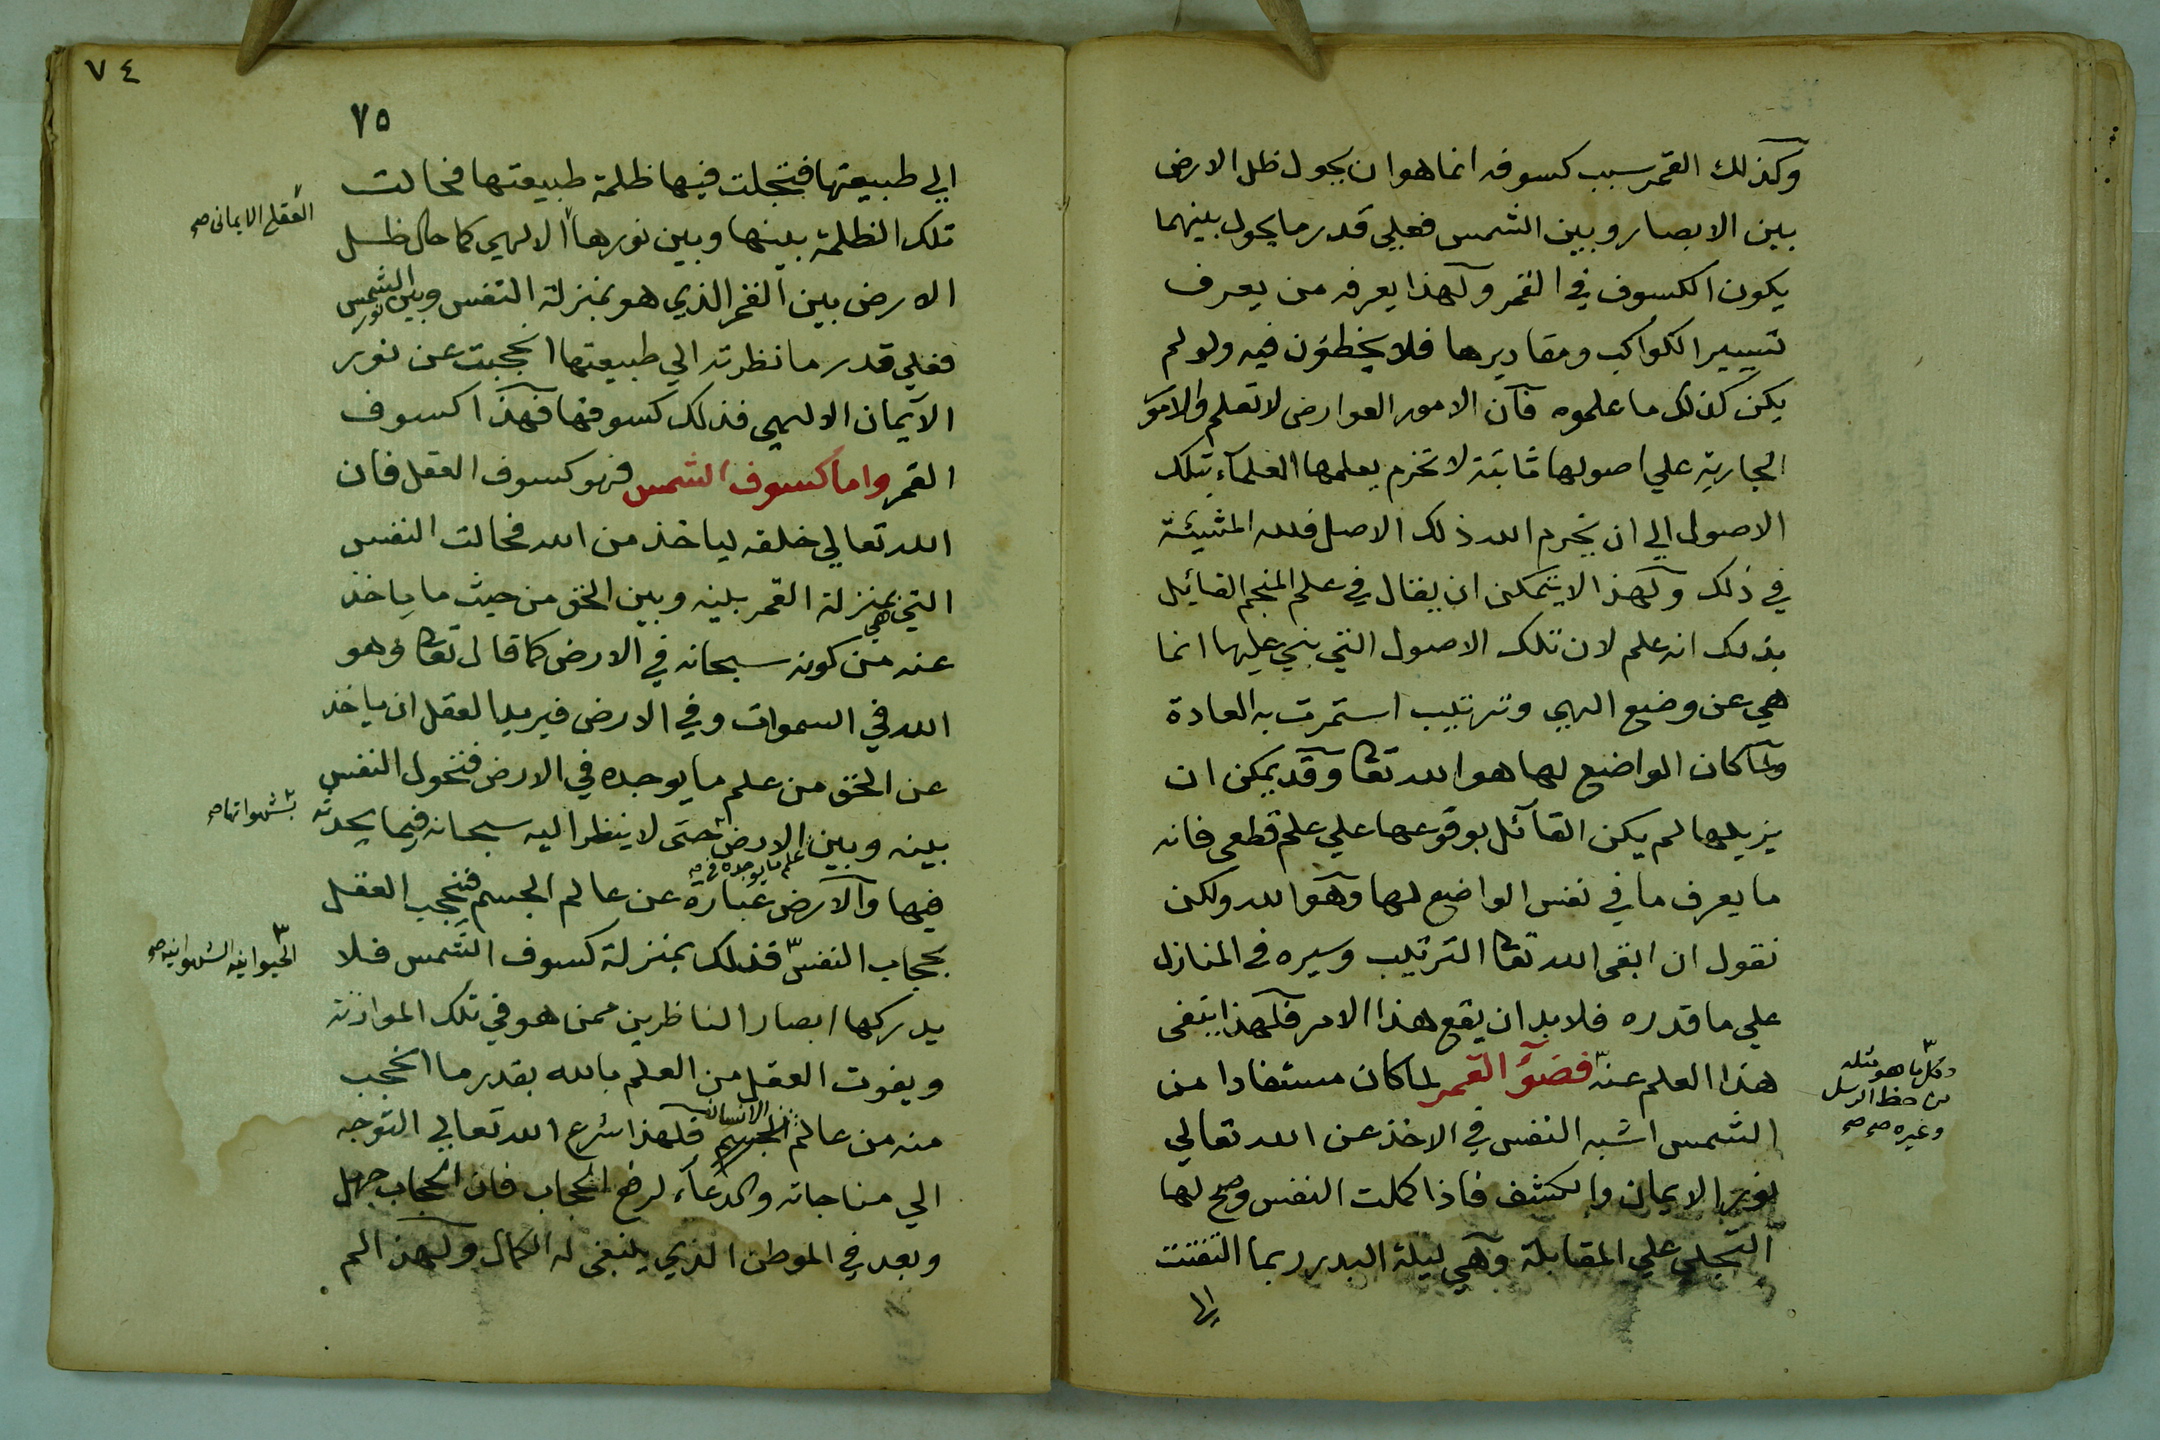 وكذلك القمر سبب كسوفه انما هو ان يحول ظل الارض
بين الابصار وبين الشمس فعلي قدر ما يحول بينهما
يكون الكسوف في القمر ولهذا يعرفه من يعرف
تسيير الكواكب ومقاديرها فلا يخطئون فيه ولو لم
يكن كذلك ما علموه فان الامور العوارض لا تعلم والامور
الجارية علي اصولها ثابتة لا تخرم يعلمها العلماء بتلك
الاصول الي ان يخرم الله ذلك الاصل فلله المشيئة
في ذلك ولهذا لا يتمكن ان يقال في علم المنجم القائيل
بذلك انه علم لان تلك الاصول التي بني عليها انما
هي عن وضع الهي وترتيب استمرت به العادة
ولما كان الواضع لها هو الله تعا وقد يمكن ان
يزيلها لم يكن القآئل بوقوعها علي علم قطعي فانه
ما يعرف ما في نفس الواضع لها وهو الله ولكن
نقول ان ابقي الله تعا الترتيب وسيره في المنازل
علي ما قدره فلا بد ان يقع هذا الامر فلهذا ينفي
هذا العلم عنه فضوء القمر لما كان مستفادا من
الشمس اشبه النفس في الاخذ عن الله تعالي
نور الايمان والكشف فاذا كملت النفس وصح لها
التجلي علي المقابلة وهي ليلة البدر ربما التفتت
الي
وكل ما هو مثله
من حظ الرمل
وغيره صح صح
٧٤
٧٥
الي طبيعتها فتجلت فيها ظلمة طبيعتها فحالت
تلك الظلمة بينها وبين نورها الالهي كما حال ظل
العقلي الايماني صح
الارض بين القمر الذي هو بمنزلة النفس وبين نور الشمس
فعلي قدر ما نظرت الي طبيعتها انحجبت عن نور
الايمان الالهي فذلك كسوفها فهذا كسوف
القمر واما كسوف الشمس فهو كسوف العقل فان
الله تعالي خلقه لياخذ من الله فحالت النفس
التي هي بمنزلة القمر بينه وبين الحق من حيث ما ياخذ
عنه من كونه سبحانه في الارض كما قال تعا وهو
الله في السموات وفي الارض فيريد العقل ان ياخذ
عن الحق من علم ما يوجده في الارض فتحول النفس
بشهواتها صح
بينه وبين علم ما يوجده في الارض حتى لا ينظر اليه سبحانه فيما يحدثه
فيها والارض عبارة عن عالم الجسم فيحجب العقل
بحجاب النفس فذلك بمنزلة كسوف الشمس فلا
الحيوانية الشهوانية صح
يدركها ابصار الناظرين ممن هو في تلك الموازنة
ويفوت العقل من العلم بالله بقدر ما انحجب
منه من عالم الجسم الانساني فلهذا شرع الله تعالي التوجه
الي مناجاته والدعاء لرفع الحجاب فان الحجاب جهل
وبعد في الموطن الذي ينبغي له الكمال ولهذا لم